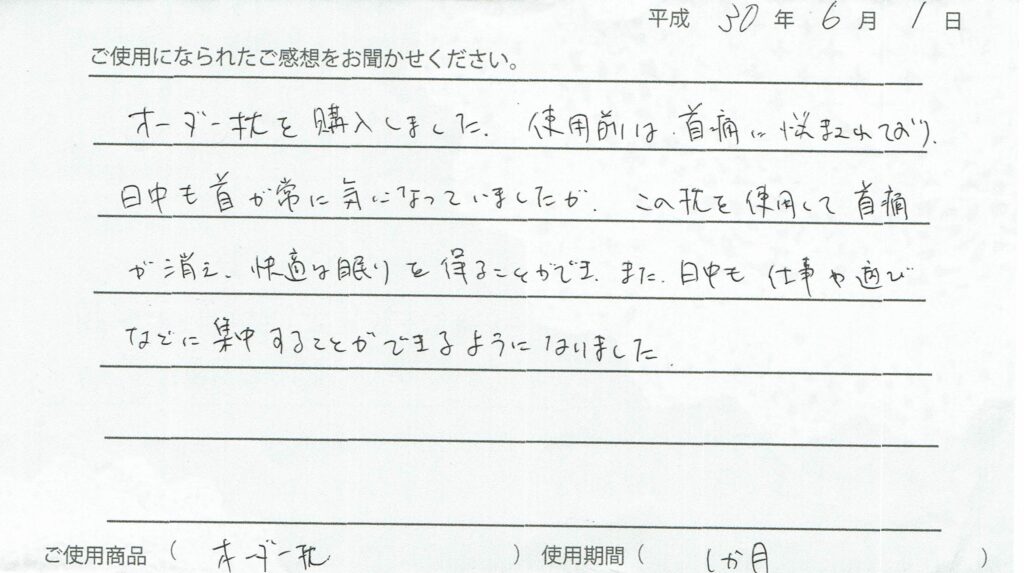 平成 30 年 6 月 1 日
ご使用になられたご感想をお聞かせください。
オーダー枕を購入しました。使用前は、首痛に悩まされており、
日中も首が常に気になっていましたが、この枕を使用して首痛
が消え、快適な眠りを得ることができ、また、日中も仕事や遊び
などに集中することができるようになりました。
ご使用商品 ( オーダー枕 ) 使用期間 ( 1か月 )